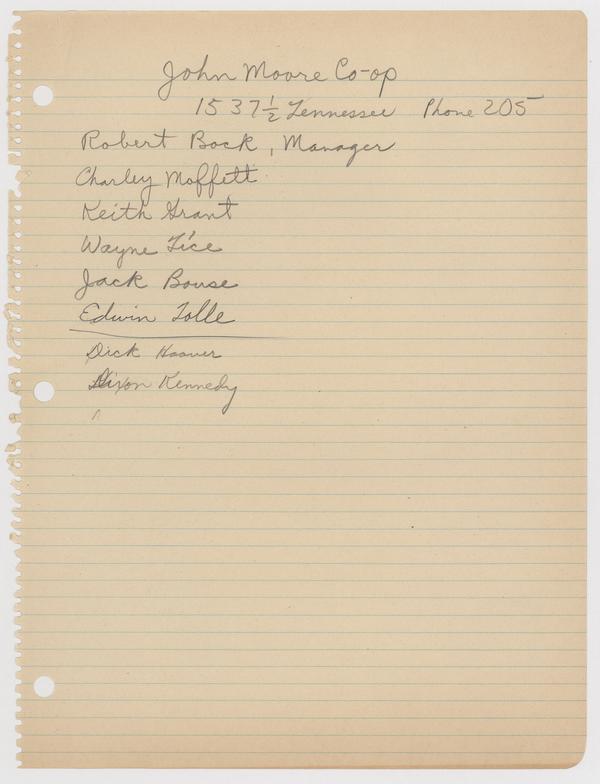 John Moore Co-op
1537½ Tennessee Phone 205
Robert Bock, Manager
Charley Moffett
Keith Grant
Wayne Tice
Jack Bouse
Edwin Tolle
Dick Hoover
Dixon Kennedy